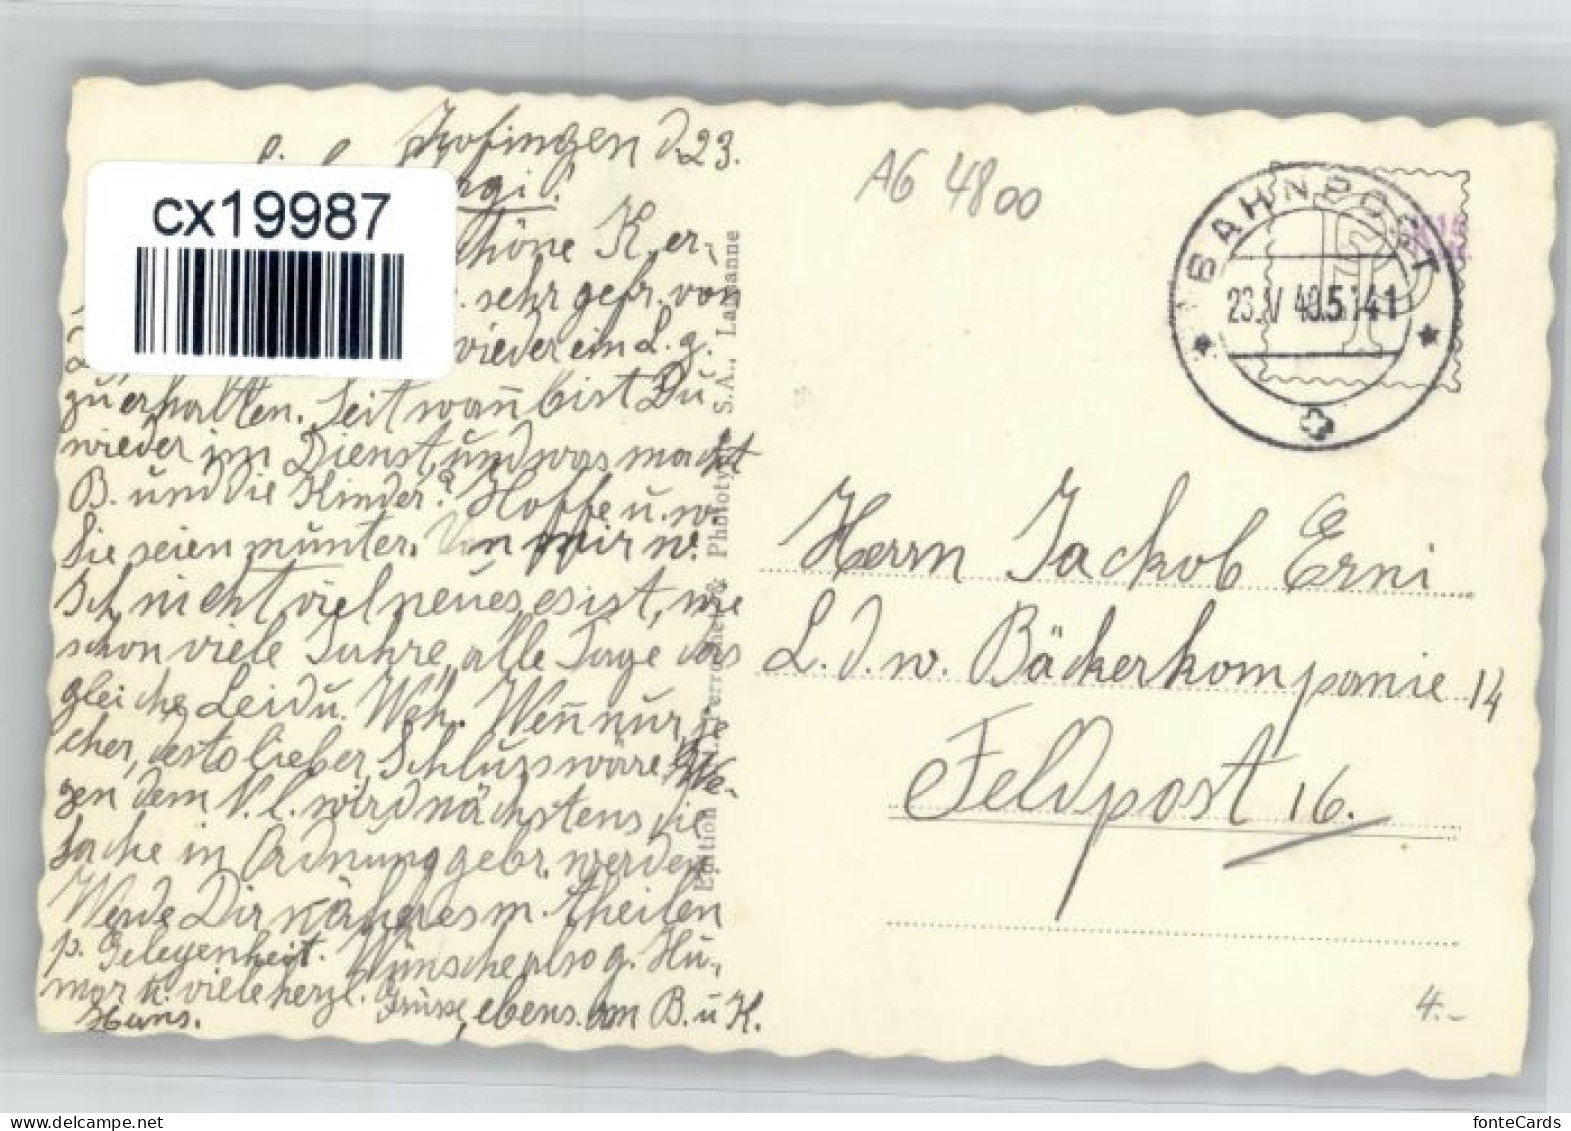 Zofingen d. 23.
cx19987
schöne K. er-
sehr gefr. von
wieder ein L. g.
zu erhalten. Seit wañ bist Du
wieder im Dienst, und was macht
B. und die Kinder? Hoffe u. w.
Sie seien munter. Von mir w.
ich nicht viel neues, es ist, wie
schon viele Jahre, alle Tage das
gleiche Leid u. Weh. Weñ nur, je
eher, desto lieber, Schluss wäre. We-
gen dem V. l. wird nächstens die
Sache in Ordnung gebr. werden.
Werde Dir näheres m. theilen
p. Gelegenheit. Wünsche also g. Hu-
mor u. viele herzl. Grüsse, ebens. an B. u. K.
Hans.
Edition Perrochet & Phototypie S.A., Lausanne
AG 4800
BAHNPOST
Herrn Jackob Erni
L. d. w. Bäckerkompanie 14
Feldpost 16.
4.-
fonteCards